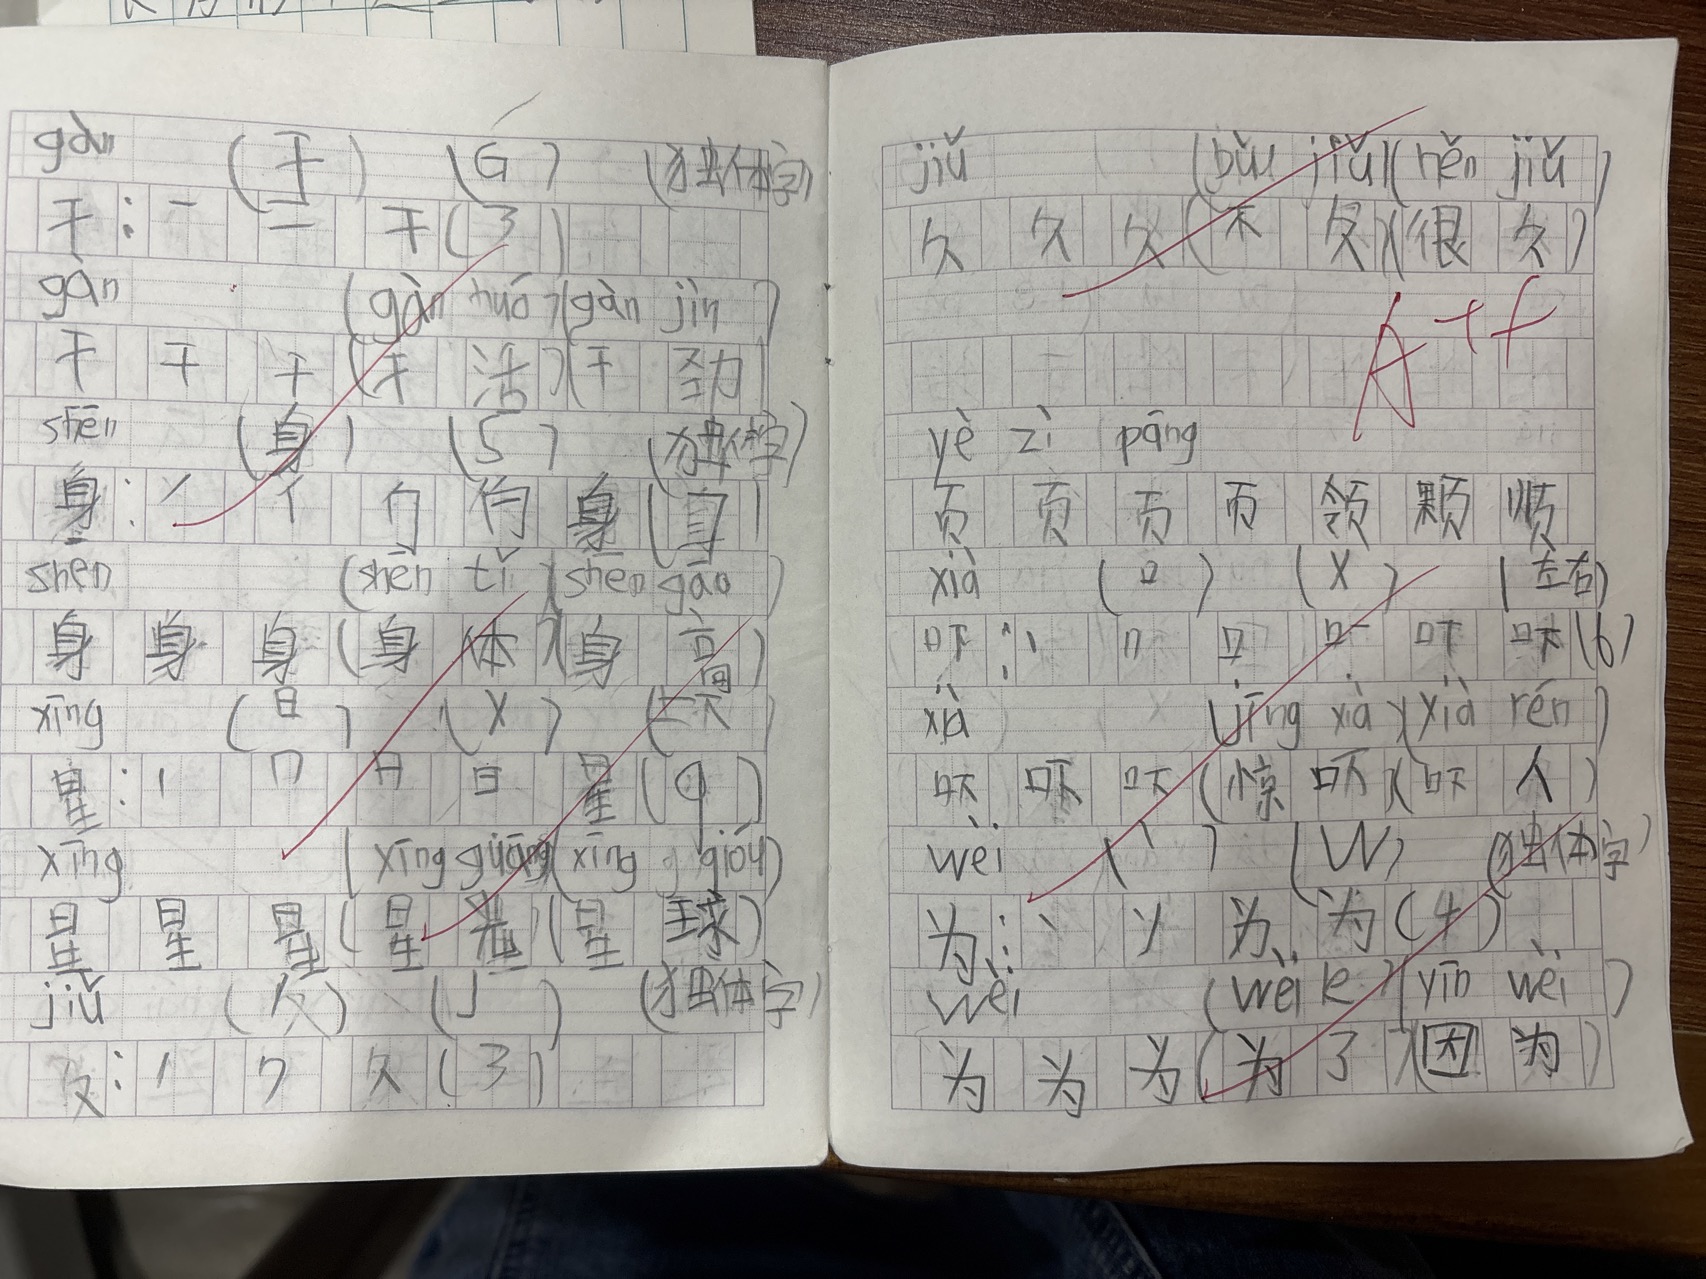 gàn (干) (G) (独体字)
干: 一 二 干 (3)
gàn (gàn huó) (gàn jìn)
干 干 干 (干 活) (干 劲)
shēn (身) (S) (独体字)
身: 丿 亻 身
shēn (shēn tǐ) (shēn gāo)
身 身 身 (身 体) (身 高)
xīng (日) (X)
星: 丨 冂 日 日 星 (9)
xīng (xīng guāng) (xīng qióu)
星 星 星 (星 光) (星 球)
jiǔ (久) (J) (独体字)
久: 丿 ク 久 (3)
jiǔ (bù jiǔ) (hěn jiǔ)
久 久 久 (不 久) (很 久)
A++
yè zì páng
页 页 页 页 领 颗 顺
xià (口) (X) (左右)
吓: 丨 冂 口 吓 吓 (6)
xià (jīng xià) (xià rén)
吓 吓 吓 (惊 吓) (吓 人)
wèi (丶) (W) (独体字)
为: 丶 ソ 为 为 (4)
wèi (wèi le) (yīn wèi)
为 为 为 (为 了) (因 为)